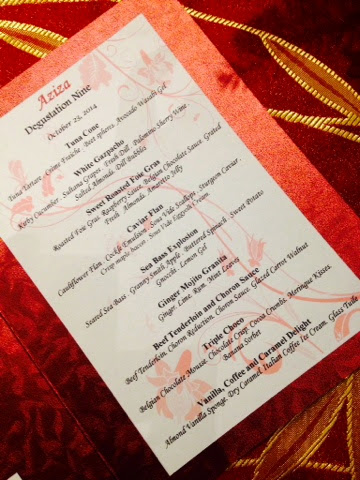 Aziza
Degustation Nine
October 23, 2014
Tuna Cone
Tuna Tartare . Crème Fraiche . Beet spheres. Avocado Wasabi Gel
White Gazpacho
Kirby Cucumber . Sultana Grapes . Fresh Dill . Palomino Sherry Wine
Salted Almonds. Dill Bubbles
Sweet Roasted Foie Gras
Roasted Foie Gras. Raspberry Sauce. Belgian Chocolate Sauce. Grated
Fresh . Almonds. Amaretto Jelly
Caviar Flan
Cauliflower Flan . Cockle Emulsion . Sous Vide Scallops . Sturgeon Caviar .
Crisp maple bacon . Sous Vide Eggyolk Cream
Sea Bass Explosion
Seared Sea Bass . Granny Smith Apple . Buttered Spinach . Sweet Potato
Gnocchi . Lemon Gel
Ginger Mojito Granita
Ginger. Lime. Rum. Mint Leaves
Beef Tenderloin and Choron Sauce
Beef Tenderloin. Choron Reduction. Choron Sauce. Glazed Carrot Walnut
Triple Choco
Belgian Chocolate Mousse. Chocolate Crisp. Cocoa Crumbs. Meringue Kisses.
Banana Sorbet
Vanilla, Coffee and Caramel Delight
Almond Vanilla Sponge. Dry Caramel. Italian Coffee Ice Cream. Glass Tuile